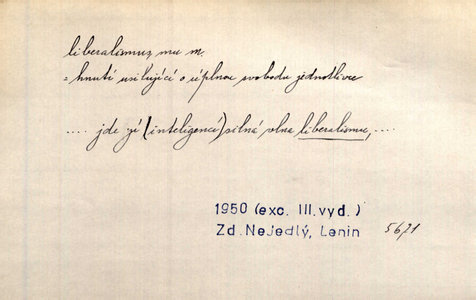 liberalismus, mu m.
= hnutí usilující o úplnou svobodu jednotlivce
.... jde jí (inteligencí) silná vlna liberalismu, ....
1950 (exc. III. vyd.)
Zd. Nejedlý, Lenin
56/1